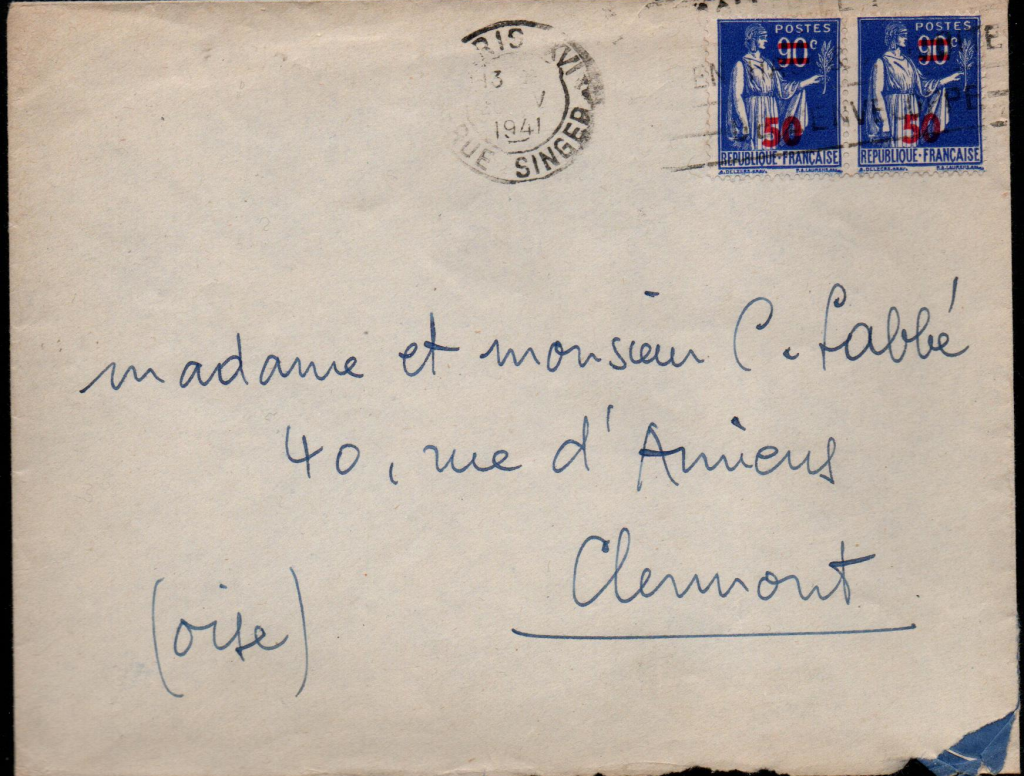 RIS XVI
13
V
1941
RUE SINGER
POSTES POSTES
90c 90c
50 50
ENVELOPPE
REPUBLIQUE·FRANÇAISE REPUBLIQUE·FRANÇAISE
madame et monsieur C. Labbé
40, rue d'Amiens
Clermont
(oise)